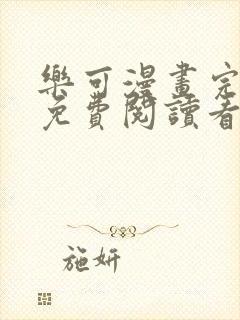 樂可漫畫完
免費閱讀看
施妍